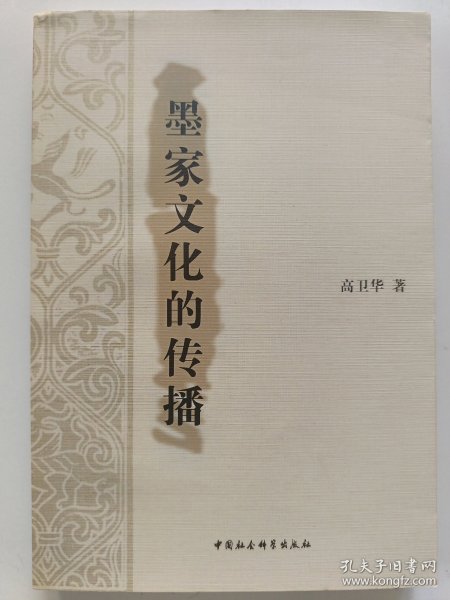 墨家文化的传播
高卫华 著
中国社会科学出版社
孔夫子旧书网
www.kongfz.com